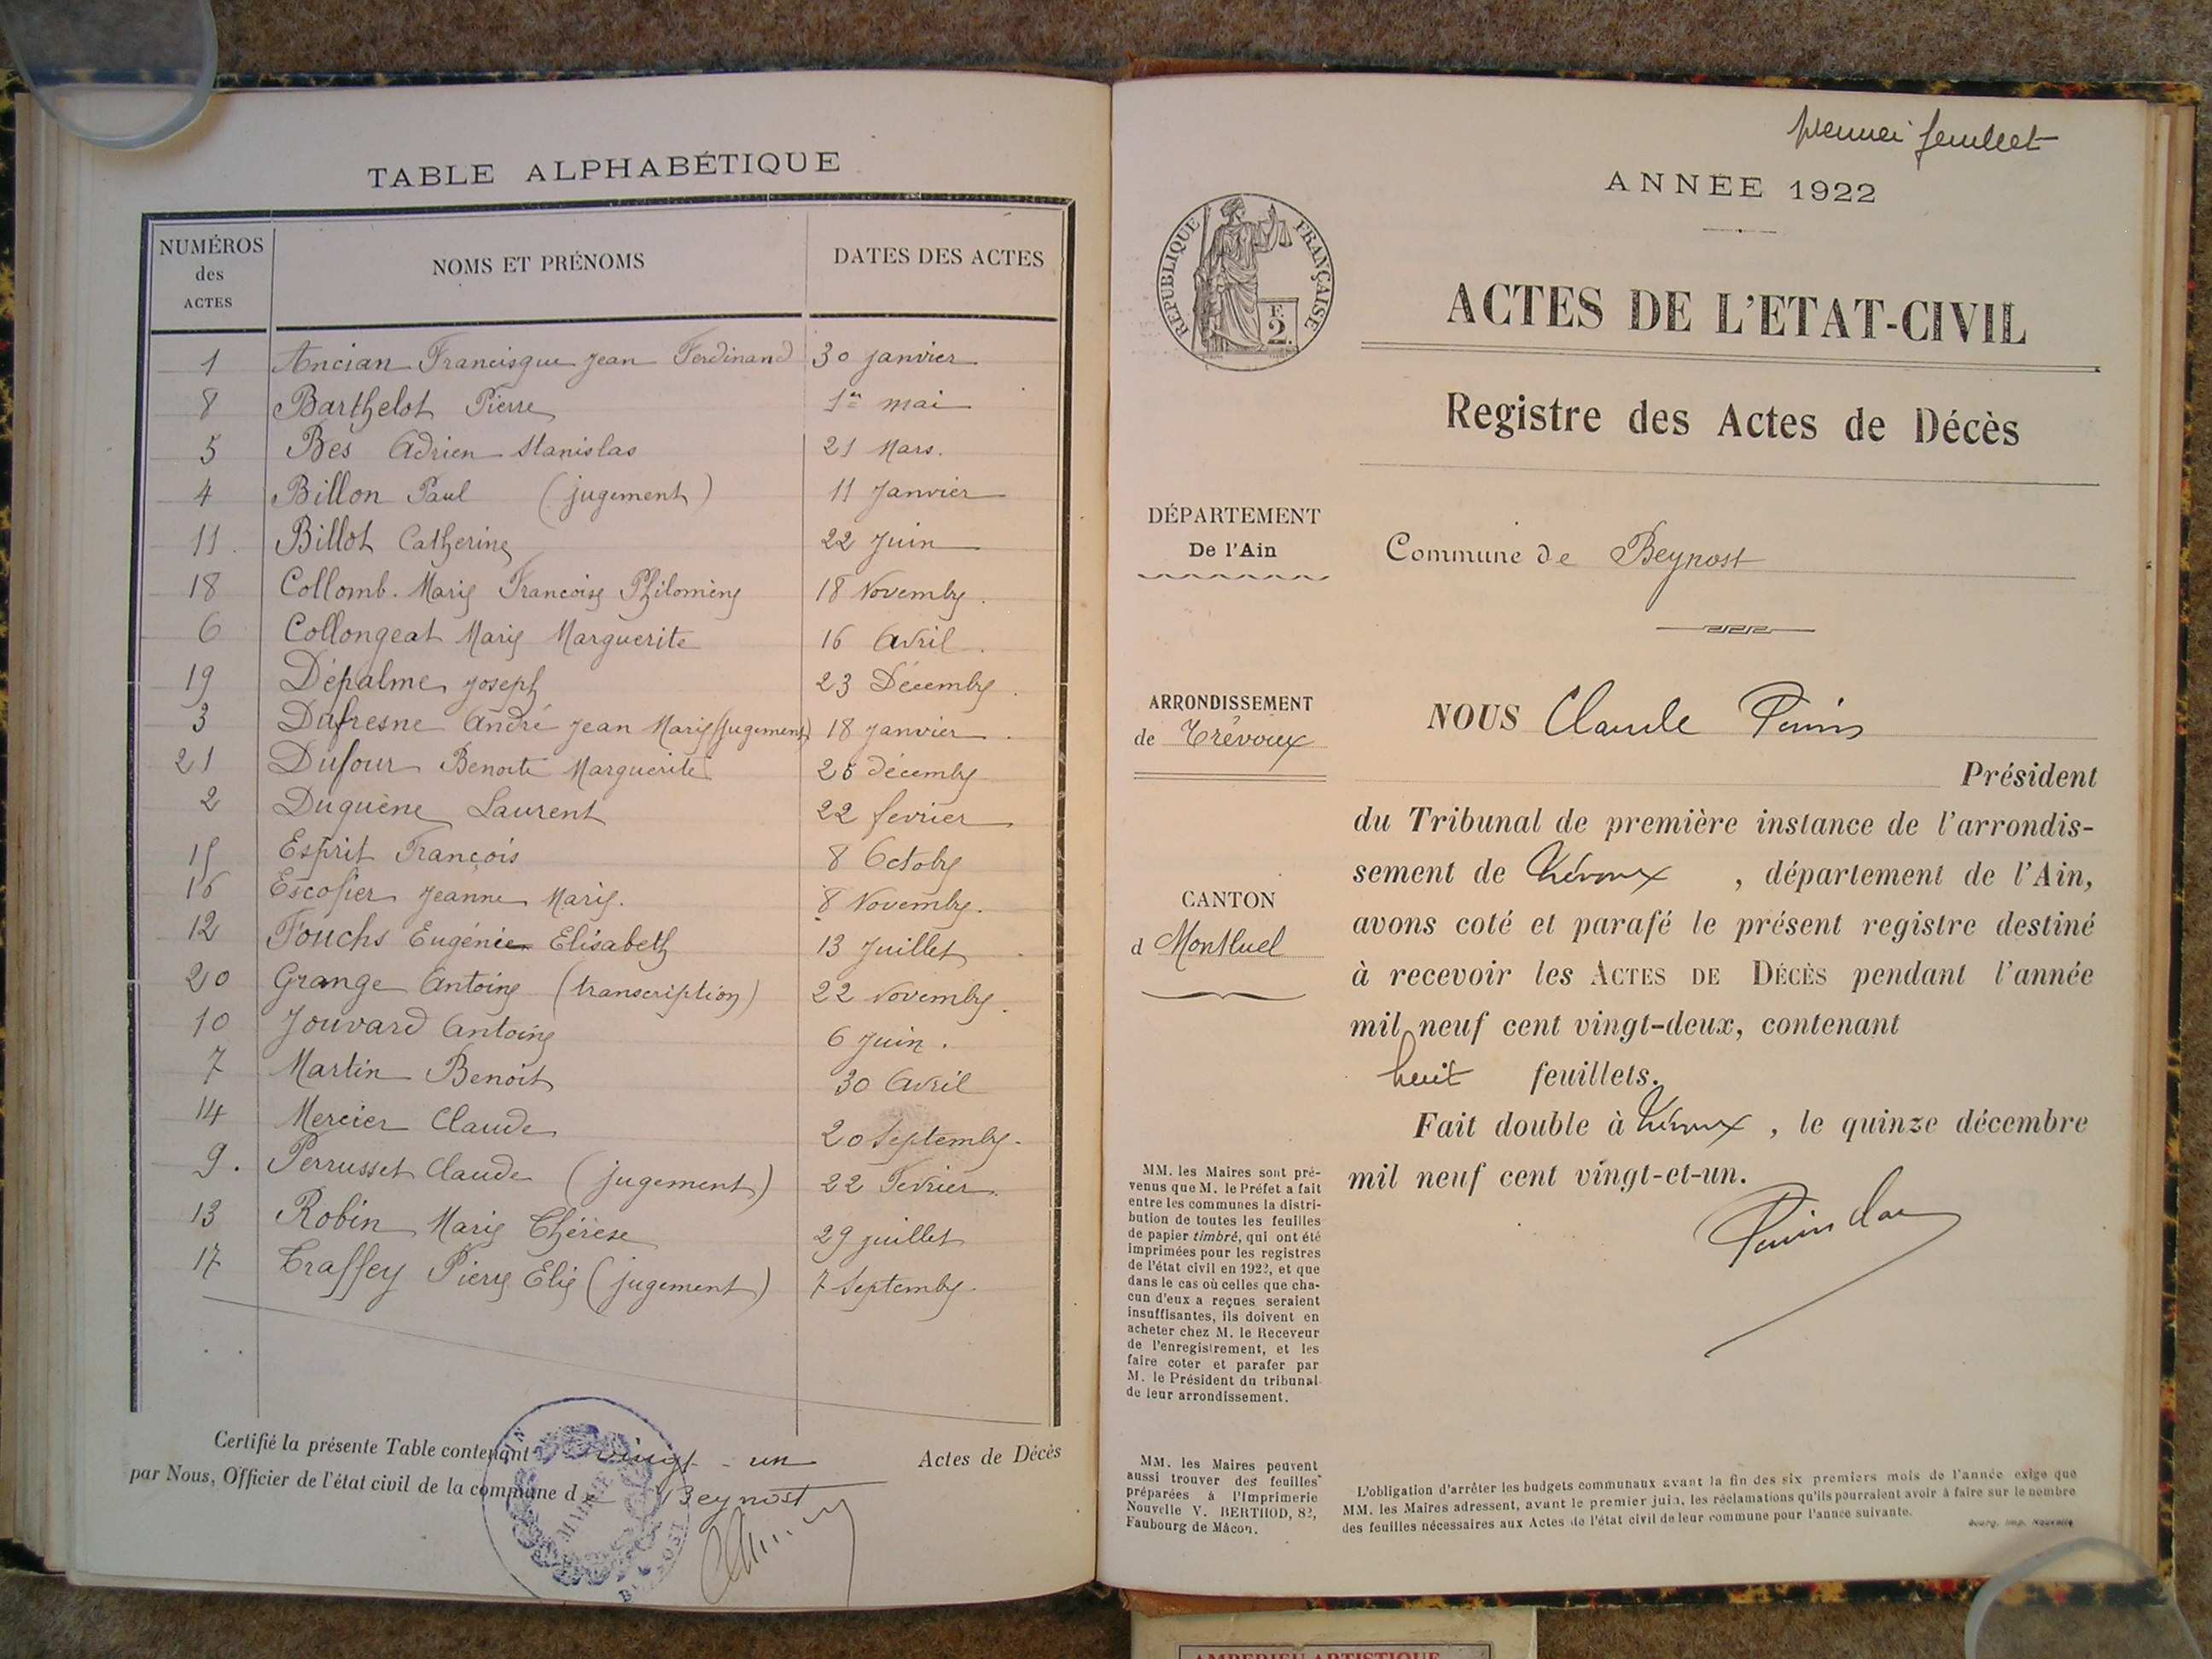 TABLE ALPHABÉTIQUE
NUMÉROS des ACTES NOMS ET PRÉNOMS DATES DES ACTES
1 Ancian Francisque Jean Ferdinand 30 janvier
8 Barthelot Pierre 1er mai
5 Bes Adrien Stanislas 21 Mars.
4 Billon Paul (jugement) 11 Janvier
11. Billot Catherine 22 Juin
18 Collomb. Marie Francoise Philomène 18 Novembre.
6 Collongeat Marie Marguerite 16 Avril.
19 Dépalme Joseph 23 Décembre.
3 Dufresne André Jean Marie (Jugement) 18 janvier.
21 Dufour Benoite Marguerite 25 décembre
2 Duquène Laurent 22 fevrier
15 Esprit François 8 Octobre
16 Escofier Jeanne Marie. 8 Novembre.
12 Fouchs Eugénie Elisabeth 13 Juillet
20 Grange Antoine (transcription) 22 Novembre.
10 Jouvard Antoine 6 Juin.
7 Martin Benoit 30 Avril
14 Mercier Claude 20 Septembre.
9. Perrusset Claude (jugement) 22 Fevrier.
13 Robin Marie Thérèse 29 juillet
17 Traffey Pierre Elie (jugement) 7 Septembre.
Certifié la présente Table contenant vingt-un Actes de Décès
par Nous, Officier de l'état civil de la commune de Beynost
MAIRIE
premier feuillet
ANNÉE 1922
RÉPUBLIQUE FRANÇAISE
F. 2.
ACTES DE L'ETAT-CIVIL
Registre des Actes de Décès
DÉPARTEMENT
De l'Ain
Commune de Beynost
ARRONDISSEMENT
de Trévoux
NOUS Claude
Président
du Tribunal de première instance de l'arrondis-
sement de Trévoux, département de l'Ain,
CANTON
d Montluel
avons coté et parafé le présent registre destiné
à recevoir les ACTES DE DÉCÈS pendant l'année
mil neuf cent vingt-deux, contenant
huit feuillets.
Fait double à Trévoux, le quinze décembre
mil neuf cent vingt-et-un.
MM. les Maires sont pré-
venus que M. le Préfet a fait
entre les communes la distri-
bution de toutes les feuilles
de papier timbré, qui ont été
imprimées pour les registres
de l'état civil en 1922, et que
dans le cas où celles que cha-
cun d'eux a reçues seraient
insuffisantes, ils doivent en
acheter chez M. le Receveur
de l'enregistrement, et les
faire coter et parafer par
M. le Président du tribunal
de leur arrondissement.
MM. les Maires peuvent
aussi trouver des feuilles
préparées à l'Imprimerie
Nouvelle V. BERTHOD, 82,
Faubourg de Mâcon.
L'obligation d'arrêter les budgets communaux avant la fin des six premiers mois de l'année exige que
MM. les Maires adressent, avant le premier juin, les réclamations qu'ils pourraient avoir à faire sur le nombre
des feuilles nécessaires aux Actes de l'état civil de leur commune pour l'année suivante.
Bourg, Imp. Nouvelle
AMBERIEU ARTISTIQUE